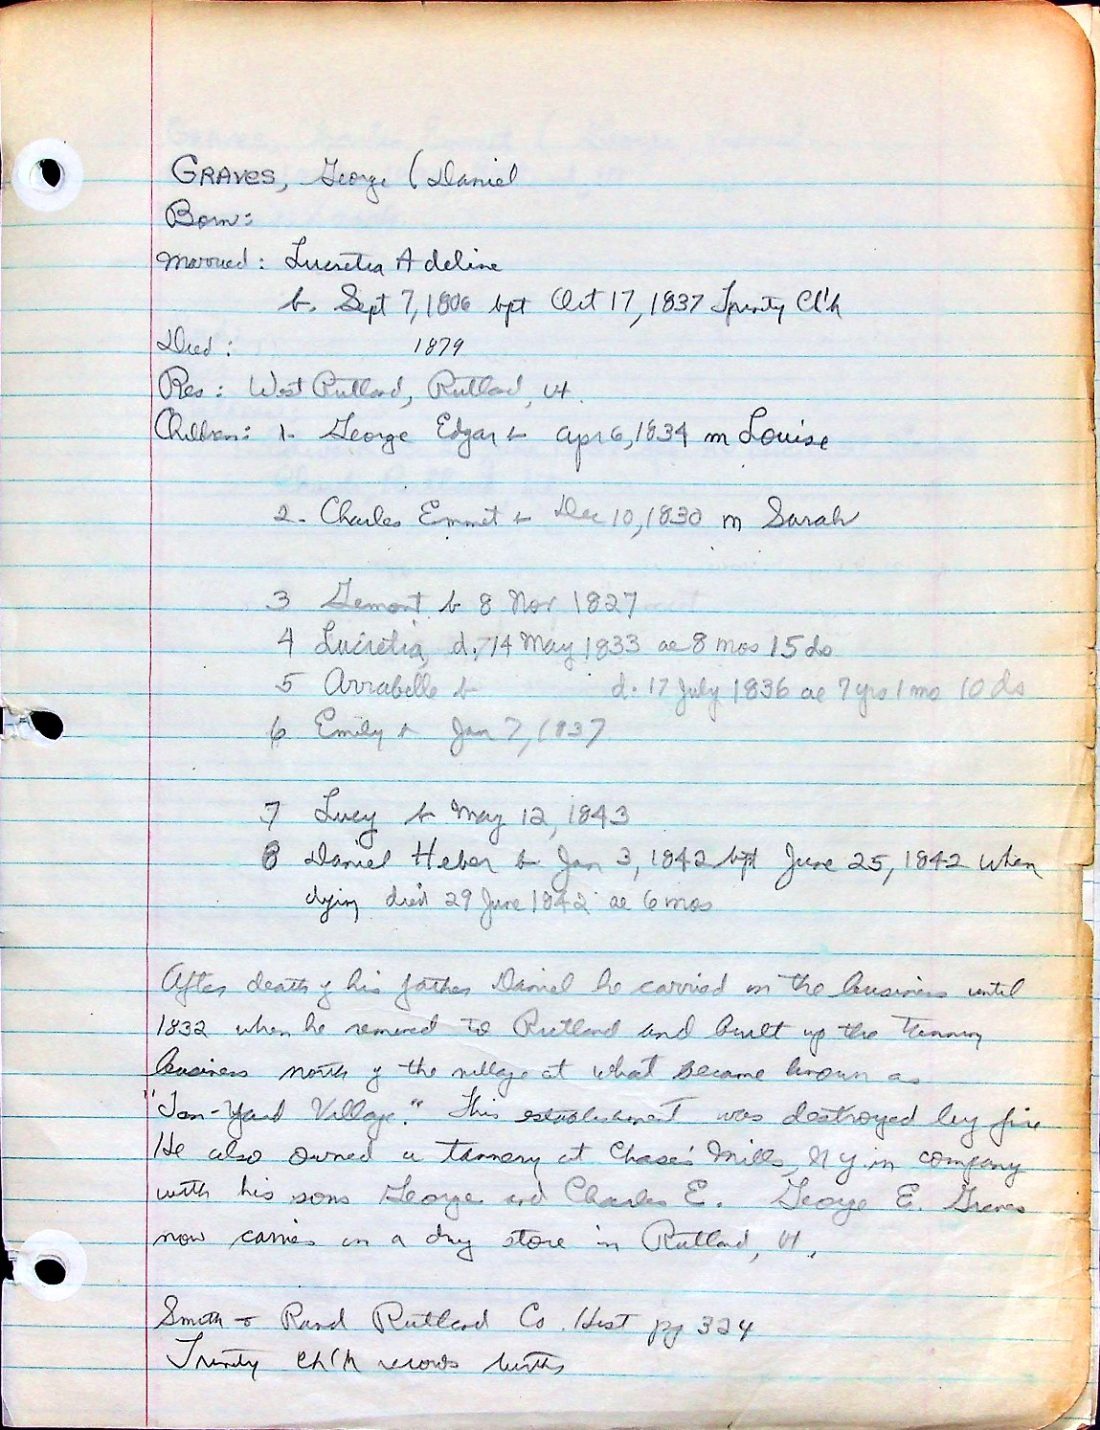 GRAVES, George (Daniel
Born:
Married: Lucretia Adeline
b. Sept 7, 1806 bpt Oct 17, 1837 Trinity Ch'h
Died: 1879
Res: West Rutland, Rutland, Vt.
Children: 1. George Edgar b Apr 6, 1834 m Louise
2. Charles Emmet b Dec 10, 1830 m Sarah
3 Gemont b 8 Nov 1827
4 Lucretia, d. 14 May 1833 ae 8 mos 15 ds
5 Arrabelle b d. 17 July 1836 ae 7 yrs 1 mo 10 ds
6 Emily b Jan 7, 1837
7 Lucy b May 12, 1843
8 Daniel Heber b Jan 3, 1842 bpt June 25, 1842 when
dying died 29 June 1842 ae 6 mos
After death of his father Daniel he carried on the business until
1832 when he removed to Rutland and built up the Tanning
business north of the village at what became known as
"Tan-Yard Village." This establishment was destroyed by fire
He also owned a tannery at Chase's Mills, N Y in company
with his sons George and Charles E. George E. Graves
now carries on a dry store in Rutland, Vt.
Smith & Rand Rutland Co. Hist pg 324
Trinity Ch'h records births